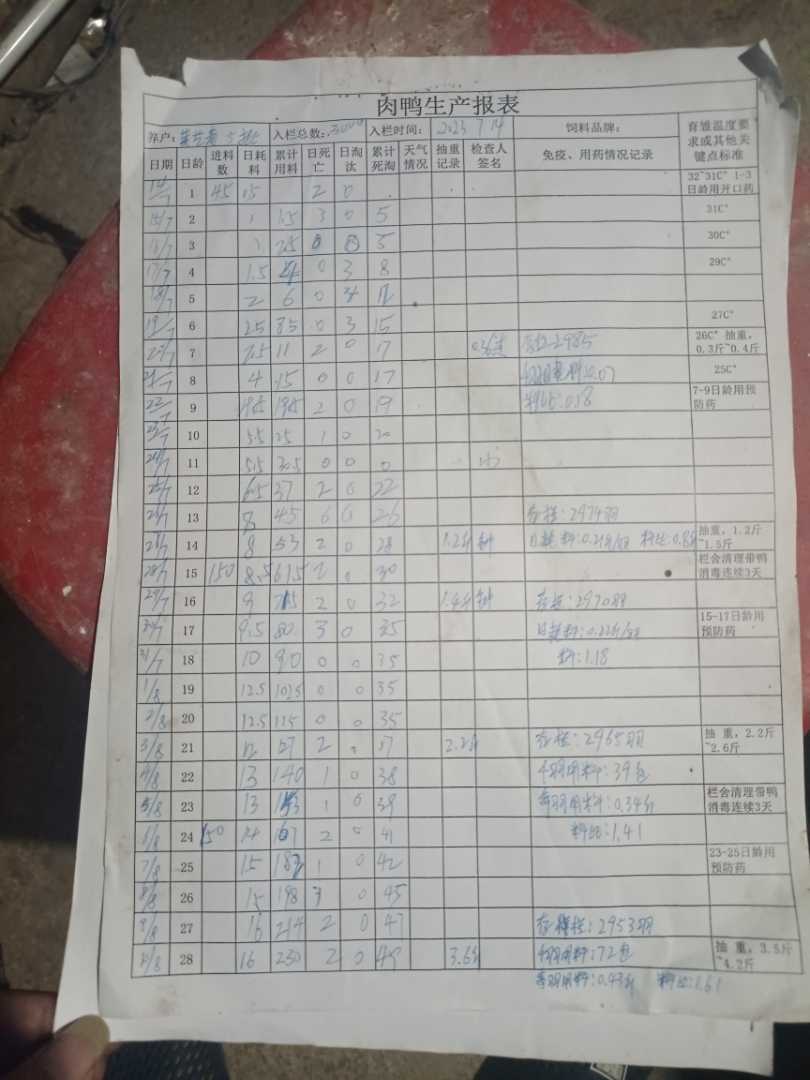 肉鸭生产报表
养户: 入栏总数: 3000 入栏时间: 2023 7 14 饲料品牌: 育雏温度要求或其他关键点标准
日期 日龄 进料数 日耗料 累计用料 日死亡 日淘汰 累计死淘 天气情况 抽重记录 检查人签名 免疫、用药情况记录
14/7 1 45 2 0 32~31C° 1-3日龄用开口药
15/7 2 1 1.5 3 0 5 31C°
16/7 3 1 2.5 0 0 5 30C°
17/7 4 1.5 4 0 3 8 29C°
18/7 5 2 6 0 4 12
19/7 6 2.5 8.5 0 3 15 27C°
20/7 7 2.5 11 2 0 17 存栏:2985 26C° 抽重,0.3斤~0.4斤
21/7 8 4 15 0 0 17 25C°
22/7 9 19.5 2 0 19 料比:0.58 7-9日龄用预防药
23/7 10 5.5 25 1 0 20
24/7 11 5.5 30.5 0 0 0
25/7 12 6.5 37 2 0 22
13 8 45 6 0 26 存栏:2974羽
14 8 53 2 0 28 1.2斤 日耗料:0.21斤/羽 料比:0.8 抽重,1.2斤~1.5斤
28/7 15 150 8.5 61.5 2 0 30 栏舍清理带鸭消毒连续3天
29/7 16 9 2 0 32 1.4斤 存栏:2970羽
30/7 17 9.5 80 3 0 35 日耗料:0.22斤/羽 15-17日龄用预防药
31/7 18 10 90 0 0 35 料:1.18
1/8 19 12.5 102.5 0 0 35
2/8 20 12.5 115 0 0 35
3/8 21 12 127 2 0 37 2.2斤 存栏:2965羽 抽重,2.2斤~2.6斤
4/8 22 13 140 1 0 38 千羽用料:39包
5/8 23 13 153 1 0 39 每羽用料:0.34斤 栏舍清理带鸭消毒连续3天
6/8 24 150 14 167 2 0 41 料比:1.41
7/8 25 15 182 1 0 42 23-25日龄用预防药
8/8 26 15 198 3 0 45
9/8 27 16 214 2 0 47 存栏:2953羽
28 16 230 2 0 49 3.6斤 千羽用料:72包 抽重,3.5斤~4.2斤
每羽用料:0.43斤 料比:1.61